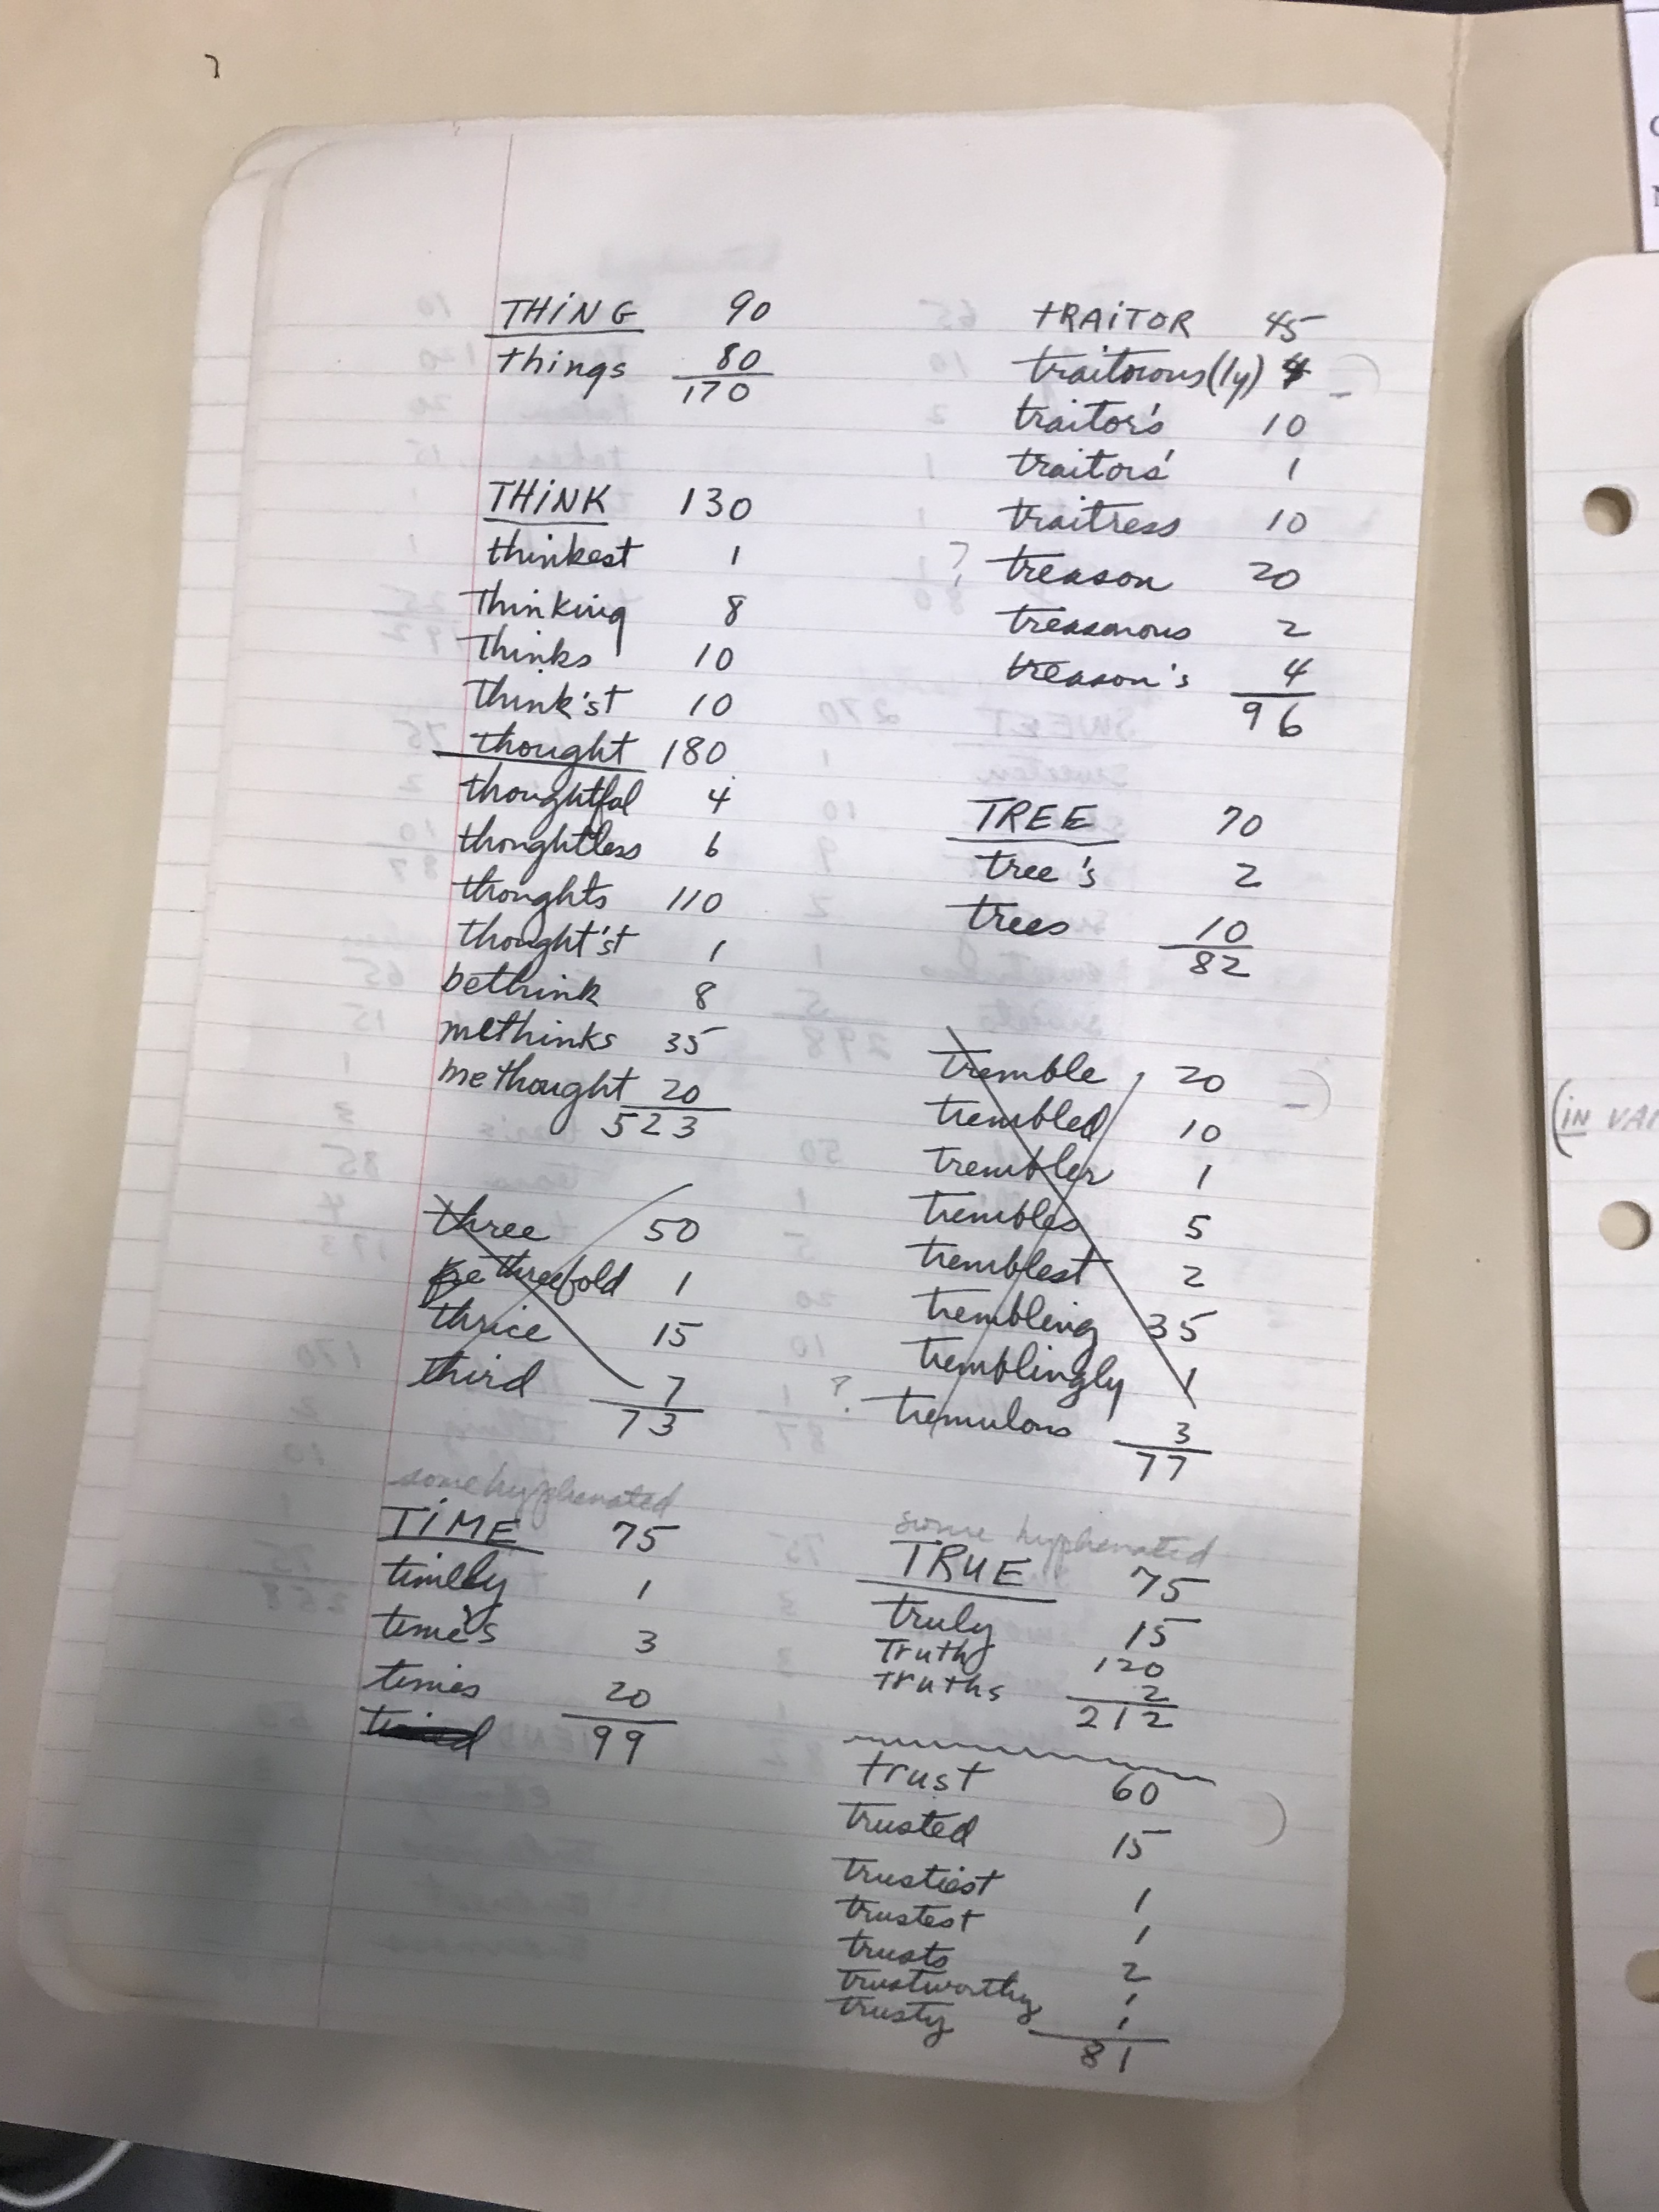 THING 90
things 80
170
THINK 130
thinkest 1
Thinking 8
Thinks 10
Think'st 10
thought 180
thoughtful 4
thoughtless 6
thoughts 110
thought'st 1
bethink 8
methinks 35
methought 20
523
three 50
threefold 1
thrice 15
third 7
73
some hyphenated
TIME 75
timely 1
time's 3
times 20
99
TRAITOR 45
traitorous(ly) 4
traitor's 10
traitors' 1
traitress 10
? treason 20
treasonous 2
treason's 4
96
TREE 70
tree's 2
trees 10
82
tremble 20
trembled 10
trembler 1
trembles 5
tremblest 2
trembling 35
tremblingly 1
? tremulous 3
77
some hyphenated
TRUE 75
truly 15
Truth 120
Truths 2
212
trust 60
trusted 15
trustiest 1
trustest 1
trusts 2
trustworthy 1
trusty 1
81
(IN VAI